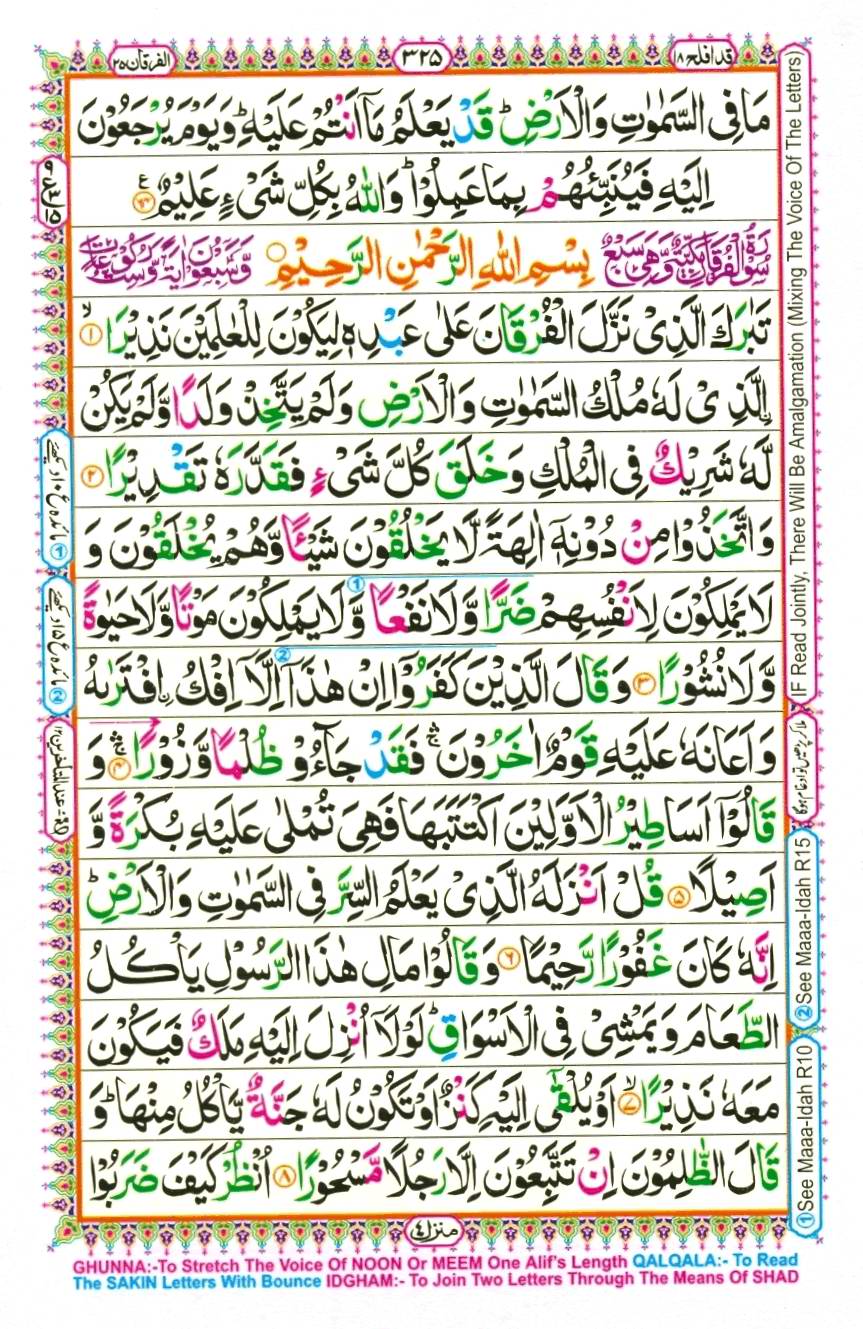 قد افلح ۱۸
۳۲۵
الفرقان ۲۵
مَا فِی السَّمٰوٰتِ وَالۡاَرۡضِؕ قَدۡ یَعۡلَمُ مَاۤ اَنۡتُمۡ عَلَیۡهِؕ وَیَوۡمَ یُرۡجَعُوۡنَ
اِلَیۡهِ فَیُنَبِّئُهُمۡ بِمَا عَمِلُوۡاؕ وَاللّٰهُ بِكُلِّ شَیۡءٍ عَلِیۡمٌ ﴿۶۴﴾ ع
سُوۡرَةُ الۡفُرۡقَانِ مَكِّیَّةٌ وَّهِیَ سَبۡعٌ
بِسۡمِ اللّٰهِ الرَّحۡمٰنِ الرَّحِیۡمِ
وَّسَبۡعُوۡنَ اٰیَةً وَّسِتُّ رُكُوۡعَاتٍ
تَبٰرَكَ الَّذِیۡ نَزَّلَ الۡفُرۡقَانَ عَلٰی عَبۡدِهٖ لِیَكُوۡنَ لِلۡعٰلَمِیۡنَ نَذِیۡرَا ۙ﴿۱﴾
اِۨلَّذِیۡ لَهٗ مُلۡكُ السَّمٰوٰتِ وَالۡاَرۡضِ وَلَمۡ یَتَّخِذۡ وَلَدًا وَّلَمۡ یَكُنۡ
لَّهٗ شَرِیۡكٌ فِی الۡمُلۡكِ وَخَلَقَ كُلَّ شَیۡءٍ فَقَدَّرَهٗ تَقۡدِیۡرًا ﴿۲﴾
وَاتَّخَذُوۡا مِنۡ دُوۡنِهٖۤ اٰلِهَةً لَّا یَخۡلُقُوۡنَ شَیۡـًٔا وَّهُمۡ یُخۡلَقُوۡنَ وَ
لَا یَمۡلِكُوۡنَ لِاَنۡفُسِهِمۡ ضَرًّا وَّلَا نَفۡعًا ① وَّلَا یَمۡلِكُوۡنَ مَوۡتًا وَّلَا حَیٰوةً
وَّلَا نُشُوۡرًا ﴿۳﴾ وَقَالَ الَّذِیۡنَ كَفَرُوۡۤا ② اِنۡ هٰذَاۤ اِلَّاۤ اِفۡكُ اِۨفۡتَرٰىهُ
وَاَعَانَهٗ عَلَیۡهِ قَوۡمٌ اٰخَرُوۡنَ ۚۛ فَقَدۡ جَآءُوۡ ظُلۡمًا وَّزُوۡرًا ۚۛ﴿۴﴾ وَ
قَالُوۡۤا اَسَاطِیۡرُ الۡاَوَّلِیۡنَ اكۡتَتَبَهَا فَهِیَ تُمۡلٰی عَلَیۡهِ بُكۡرَةً وَّ
اَصِیۡلًا ﴿۵﴾ قُلۡ اَنۡزَلَهُ الَّذِیۡ یَعۡلَمُ السِّرَّ فِی السَّمٰوٰتِ وَالۡاَرۡضِؕ
اِنَّهٗ كَانَ غَفُوۡرًا رَّحِیۡمًا ﴿۶﴾ وَقَالُوۡا مَالِ هٰذَا الرَّسُوۡلِ یَاۡكُلُ
الطَّعَامَ وَیَمۡشِیۡ فِی الۡاَسۡوَاقِؕ لَوۡلَاۤ اُنۡزِلَ اِلَیۡهِ مَلَكٌ فَیَكُوۡنَ
مَعَهٗ نَذِیۡرًا ۙ﴿۷﴾ اَوۡ یُلۡقٰۤی اِلَیۡهِ كَنۡزٌ اَوۡ تَكُوۡنُ لَهٗ جَنَّةٌ یَّاۡكُلُ مِنۡهَاؕ وَ
قَالَ الظّٰلِمُوۡنَ اِنۡ تَتَّبِعُوۡنَ اِلَّا رَجُلًا مَّسۡحُوۡرًا ﴿۸﴾ اُنۡظُرۡ كَیۡفَ ضَرَبُوۡا
منزل ۴
IF Read Jointly, There Will Be Amalgamation (Mixing The Voice Of The Letters)
ملا کر پڑھیں تو ادغام ہوگا
② See Maaa-Idah R15
① See Maaa-Idah R10
① مائدہ ع ۱۰ اد یکھئے
② مائدہ ع ۱۵ اد یکھئے
GHUNNA:-To Stretch The Voice Of NOON Or MEEM One Alif's Length QALQALA:- To Read
The SAKIN Letters With Bounce IDGHAM:- To Join Two Letters Through The Means Of SHAD